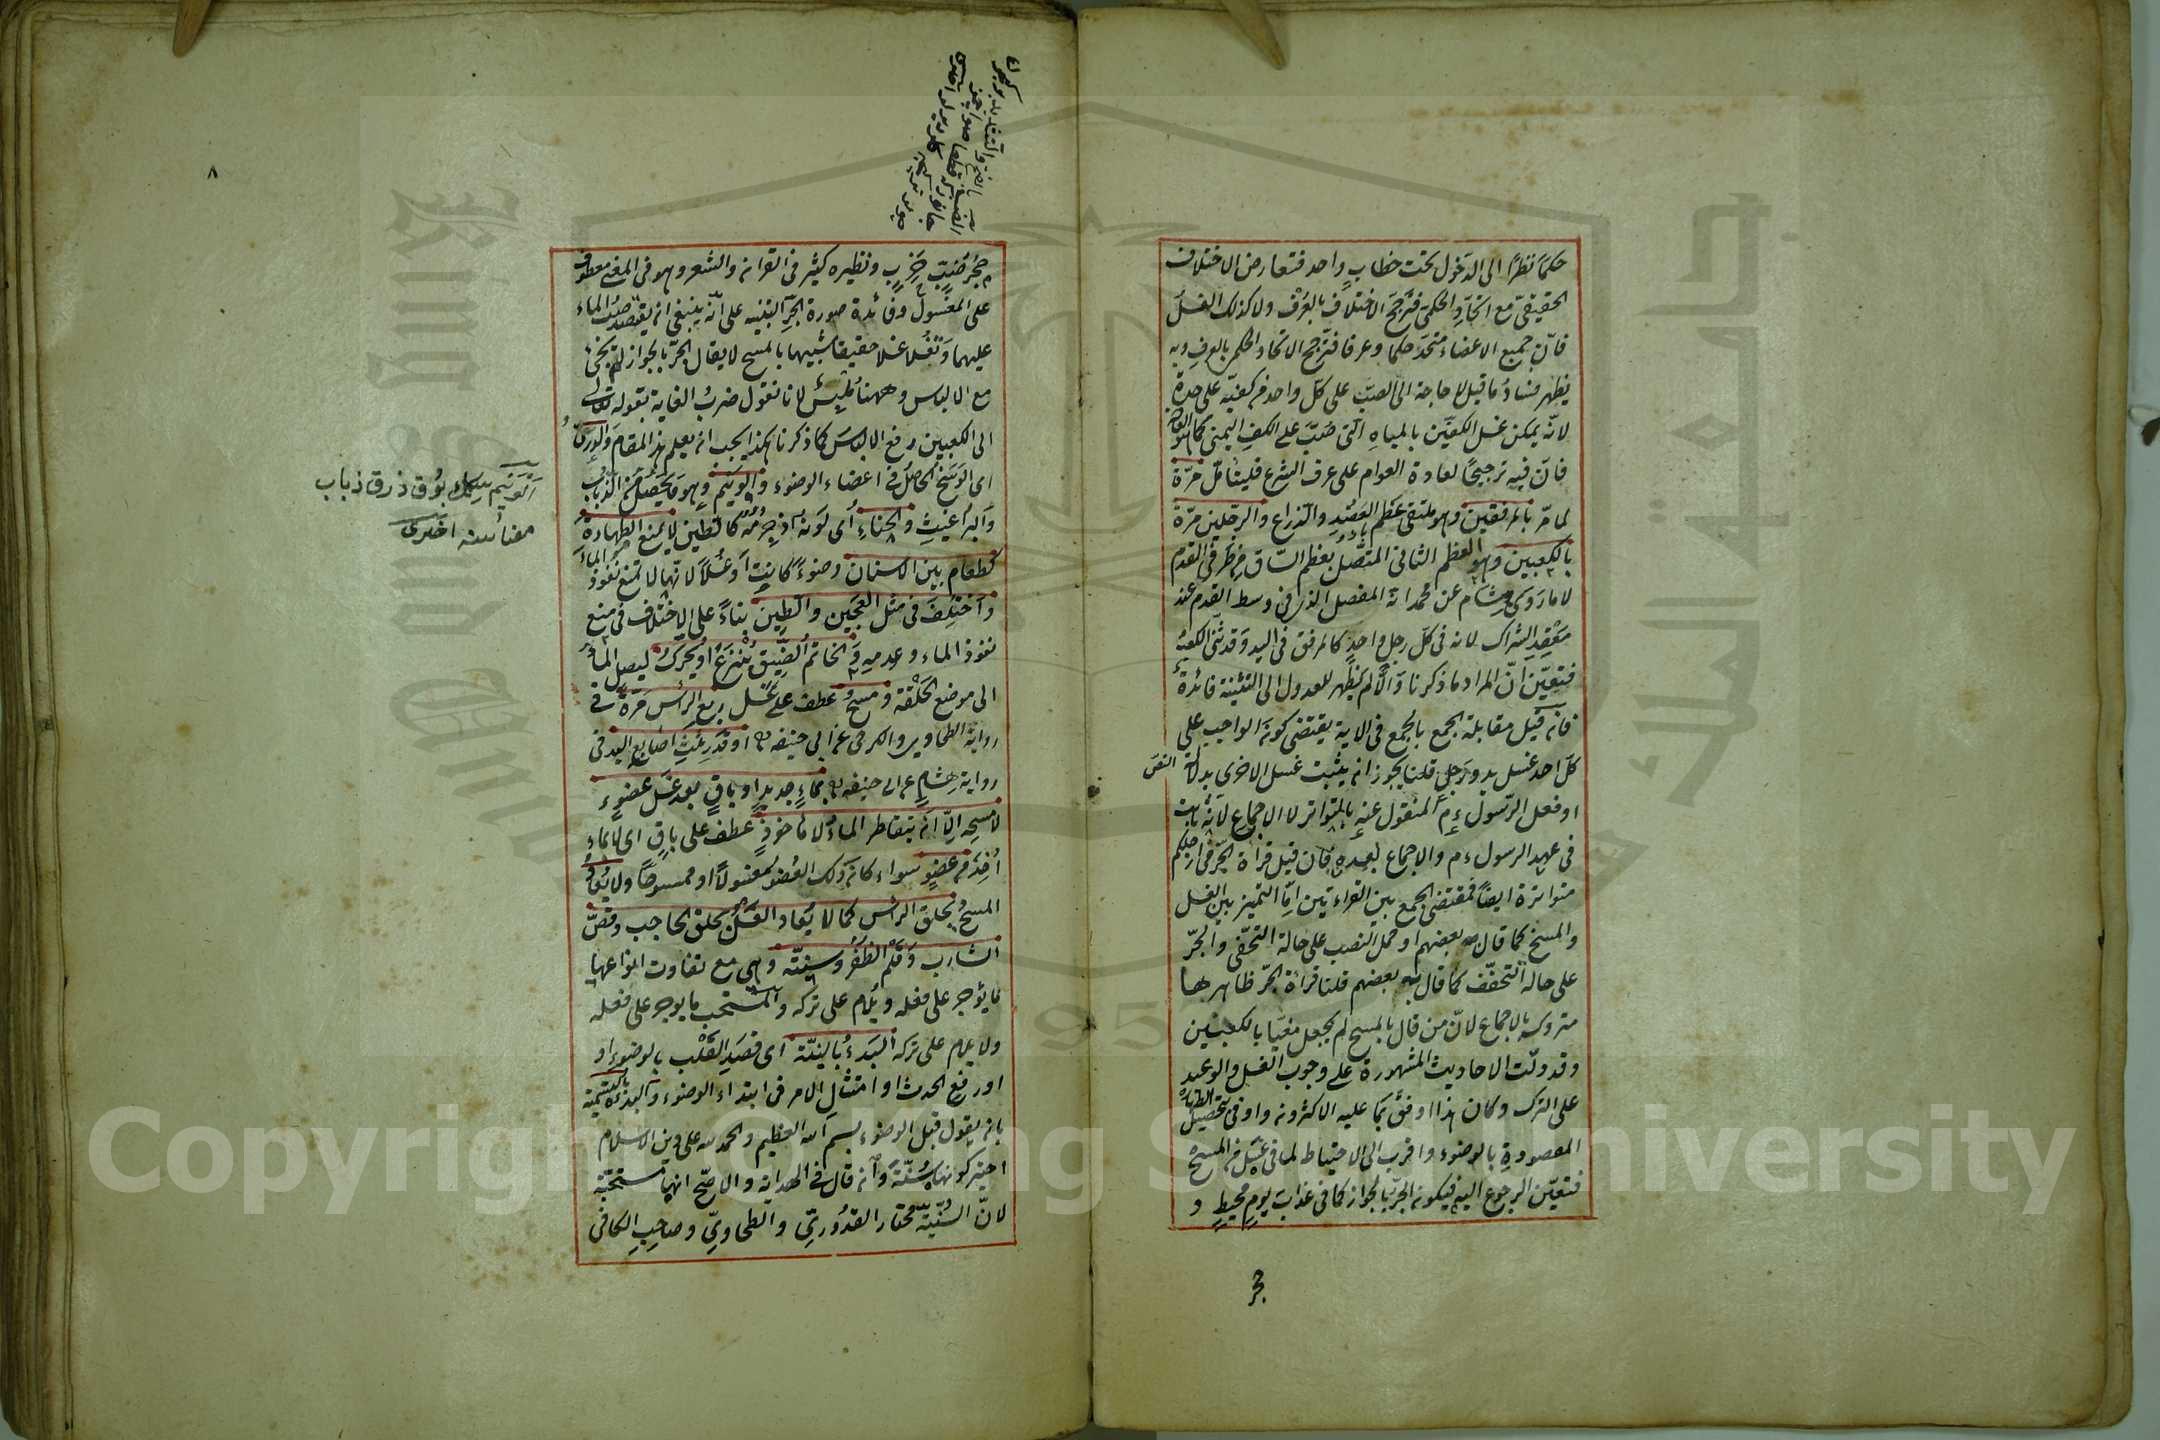 حكما نظرًا الى الدخول تحت خطاب واحد فتعارض الاختلاف
الحقيقيّ مع اتحاد الحكمى فترجح الاختلاف بالعرف ولا كذلك الغسل
فانّ جميع الاعضاء متحد حكما وعرفا فترجح الاتحاد الحكمى بالعرف وبه
يظهر فساد ما قيل لا حاجة الى الصبّ على كلّ واحد من كفيّه على حدة
لانّه يمكن غسل الكفّين بالمياه التى صُبّ على الكف اليمنى كما هو العادة
فانّ فيه ترجيحًا لعادة العوام على عرف الشرع فليتأمّل مرّة
لما مرّ بالمرفقين وهو ملتقى عظم العضد والذراع والرجلين مرّة
بالكعبين وهو العظم الثانى المتصّل بعظم السّاق من طرفى القدم
لا ما رَوَى هشام عن محمد انه المفصل الذى فى وسط القدم عند
مَعْقِدِ الشراك لانه فى كلّ رجل واحد كالمرفق فى اليد وقد ثنّى الكعبُ
فتعيّن انّ المراد ما ذكرنا والّا لم يظهر للعدول الى التثنية فائدة
فانه قيل مقابلة الجمع بالجمع فى الاية يقتضى كونه الواجب على
كلّ احد غسل يد ورجل قلنا يجوز انه يثبت غسل الاخرى بدلالة النصّ
او فعل الرّسول ءم المنقول عنه بالمتواتر لا الاجماع لأنه ثابت
فى عهد الرسول ءم والاجماع بعده فان قيل قراءة الجر فى ارجلكم
متواترة ايضًا فمقتضى الجمع بين القراءتين امّا التمييز بين الغسل
والمسح كما قال به بعضهم او حمل النصب على حالة التحفّى والجرّ
على حالة التخفّف كما قال به بعضهم قلنا قراءة الجرّ ظاهرها
متروك بالاجماع لانّ من قال بالمسح لم يجعل مغيّا بالكعبين
وقد دلّت الاحاديث المشهورة على وجوب الغسل والوعيد
على الترك وكان هذا اوفق بما عليه الاكثرونه واوفى لتحصيل الطهارة
المقصودة بالوضوء واقرب الى الاحتياط لما فى غسل من المسح
فتعيّن الرجوع اليه فيكونه الجرّ بالجواز كما فى عذاب يوم محيط و
جحر
٨
جُحْرُ ضبّ خَرِبٍ ونظيره كثير فى القرانه والشعر وهو فى المعنى معطوف
على المغسول وفائدة صورة الجرّ التنبيه على انّه ينبغى انه يقتصد صبّ الماء
عليهما وتُغسلا غسلا حقيقا شبيها بالمسح لا يقال الجرّ بالجواز لم يجئ
مع الالباس وههنا مُلبِسٌ لانا نقول ضربُ الغاية بقوله تعالى
الى الكعبين رفع الالباسَ كما ذكرنا هكذا يجب انه يعلم هذا المقام والدرن
اى الوَسَخُ الحاصلُ فى اعضاء الوضوء والونيم وهو ما يحصل من الذباب
والبراغيث والحناء اى لونه اذ جِرْمُه كالطين لا يمنع الطهارة
كطعام بين الاسنان وضوءً كانت او غُسْلًا لانّها لا تمنع نفوذ الماء
واختُلِفَ فى مثل العجين والطين بناءً على الاختلاف فى منع
نفوذ الماء وعدمه والخاتمُ الضّيّق يُنزعُ او يُحرّك ليصل الماء
الى موضع الحَلْقة ومسحُ عطف على غسل ربع الرأس مَرّةً فى
رواية الطحاوى والكرخى عن ابى حنيفه او قدرِ ثلثِ اصابع اليد فى
رواية هِشامٍ عن ابى حنيفه بماءٍ جديدٍ او باقٍ بعد غسل عضوٍ
لا مسحِه الّا انه يتقاطر الماءُ لا مأخوذٍ عطف على باقٍ اى لا بماءٍ
اُخِذَ من عضوٍ سواء كانه ذلك العُضوُ مغسولًا او ممسوحًا ولا يُعادُ
المسحُ بحلق الرأس كما لا يُعاد الغَسْلُ بحلق الحاجب وقصّ
الشارب وقَلْمِ الظفر وسنّته وهى مع تفاوت انواعها
ما يؤجر على فعله ويُلام على تركه والمستحب ما يوجر على فعله
ولا يلام على تركه البَدءُ بالنيّة اى قصدِ القلب بالوضوءِ او
او رفع الحدث او امتثال الامر فى ابتداء الوضوء والبدءُ بالتسمية
بانه يقول قبل الوضوء بسم الله العظيم والحمد لله على دين الاسلام
اختير كونها سُنّةً وانه قال فى الهدايه والاصحّ انها مستحبّة
لانّ السُنّيّة مختار القدوريّ والطحاويّ وصاحب الكافى
الوَنيم سِكك بُوق ذرق ذباب
معناسنه اخترى
Copyright © King Saud University